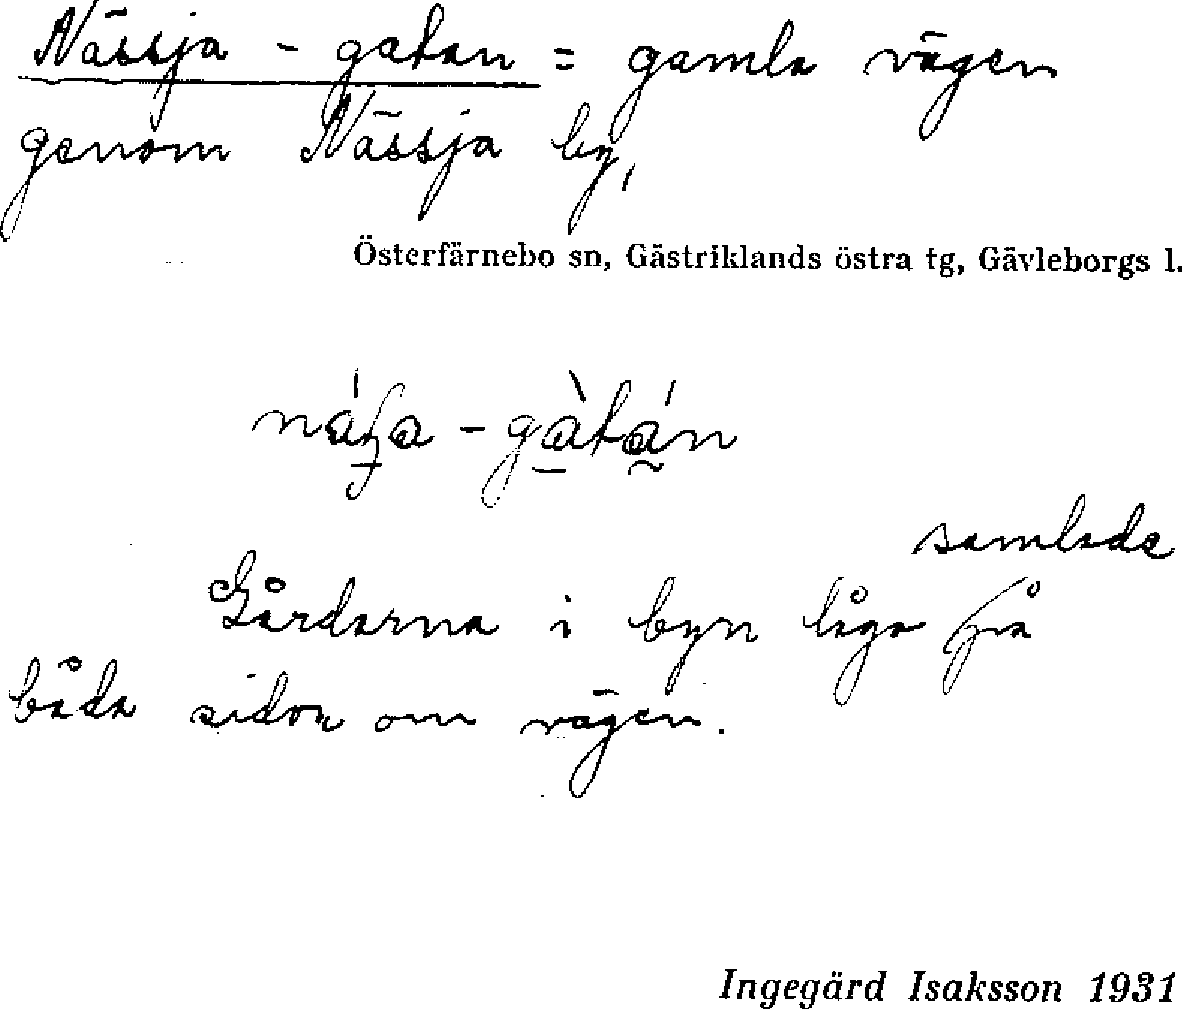 Nässja - gatan = gamla vägen
genom Nässja by,
Österfärnebo sn, Gästriklands östra tg, Gävleborgs l.
samlade
Gårdarna i byn låga på
båda sidor om vägen.
Ingegärd Isaksson 1931